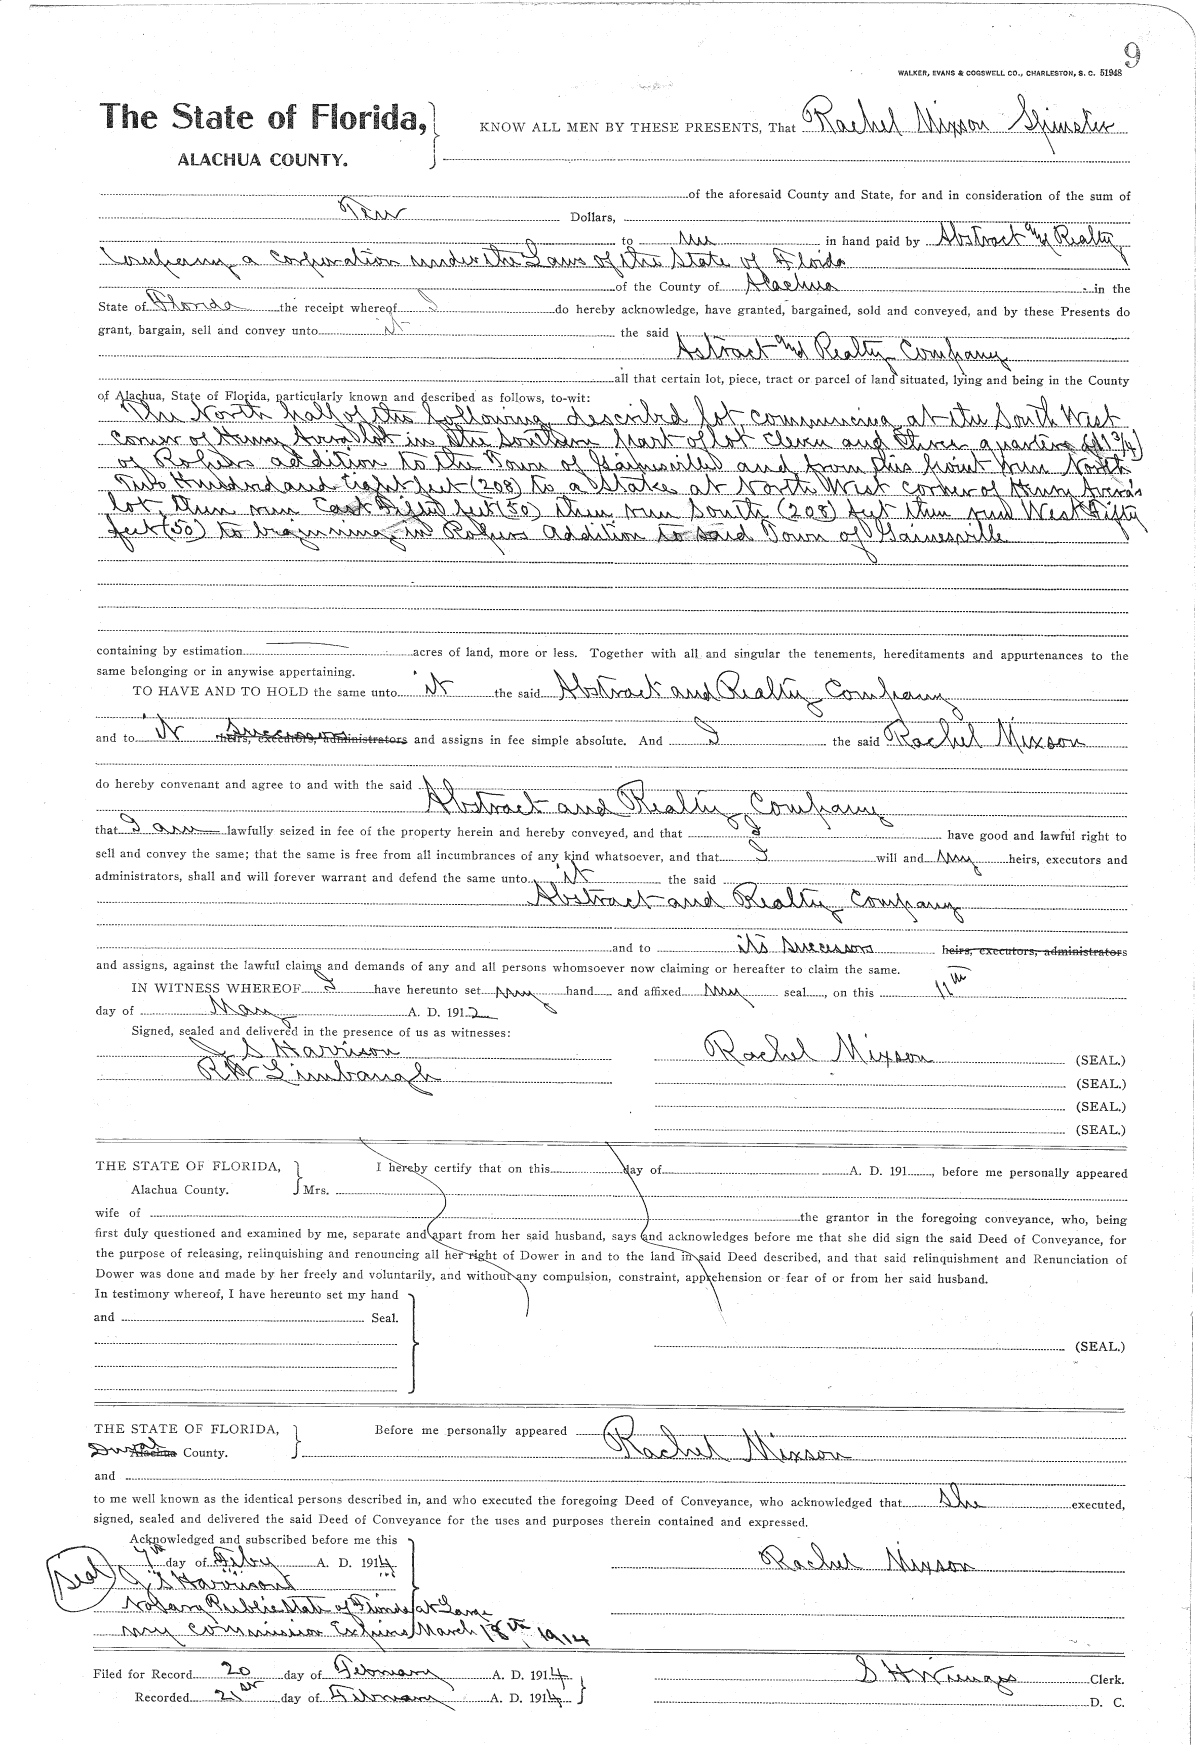 9
WALKER, EVANS & COGSWELL CO., CHARLESTON, S. C. 51948
The State of Florida,
ALACHUA COUNTY.
KNOW ALL MEN BY THESE PRESENTS, That Rachel Mixson Spinster
of the aforesaid County and State, for and in consideration of the sum of
Ten Dollars,
to me in hand paid by Abstract and Realty
Company a corporation under the Laws of the State of Florida
of the County of Alachua in the
State of Florida the receipt whereof I do hereby acknowledge, have granted, bargained, sold and conveyed, and by these Presents do
grant, bargain, sell and convey unto it the said
Astract and Realty Company
all that certain lot, piece, tract or parcel of land situated, lying and being in the County
of Alachua, State of Florida, particularly known and described as follows, to-wit:
The North half of the following described lot, commencing at the South West
corner of Henry lot in the Southern part of lot eleven and three quarters (11 3/4)
of Ropers addition to the Town of Gainesville and from this point run North
Two Hundred and Eight feet (208) to a Stake at North West corner of Henry
lot, then run East Fifty feet (50) then run South (208) feet then run West Fifty
feet (50) to beginning in Ropers Addition to said Town of Gainesville
containing by estimation acres of land, more or less. Together with all and singular the tenements, hereditaments and appurtenances to the
same belonging or in anywise appertaining.
TO HAVE AND TO HOLD the same unto it the said Abstract and Realty Company
and to it successors heirs, executors, administrators and assigns in fee simple absolute. And I the said Rachel Mixson
do hereby convenant and agree to and with the said
Abstract and Realty Company
that I am lawfully seized in fee of the property herein and hereby conveyed, and that I have good and lawful right to
sell and convey the same; that the same is free from all incumbrances of any kind whatsoever, and that I will and my heirs, executors and
administrators, shall and will forever warrant and defend the same unto it the said
Abstract and Realty Company
and to its successors heirs, executors, administrators
and assigns, against the lawful claims and demands of any and all persons whomsoever now claiming or hereafter to claim the same.
IN WITNESS WHEREOF I have hereunto set my hand and affixed my seal, on this 11th
day of May A. D. 1912
Signed, sealed and delivered in the presence of us as witnesses:
J S Harrison
R W Limbaugh
Rachel Mixson (SEAL.)
(SEAL.)
(SEAL.)
(SEAL.)
THE STATE OF FLORIDA,
Alachua County.
I hereby certify that on this day of A. D. 191, before me personally appeared
Mrs.
wife of the grantor in the foregoing conveyance, who, being
first duly questioned and examined by me, separate and apart from her said husband, says and acknowledges before me that she did sign the said Deed of Conveyance, for
the purpose of releasing, relinquishing and renouncing all her right of Dower in and to the land in said Deed described, and that said relinquishment and Renunciation of
Dower was done and made by her freely and voluntarily, and without any compulsion, constraint, apprehension or fear of or from her said husband.
In testimony whereof, I have hereunto set my hand
and Seal.
(SEAL.)
THE STATE OF FLORIDA,
Duval Alachua County.
Before me personally appeared
Rachel Mixson
and
to me well known as the identical persons described in, and who executed the foregoing Deed of Conveyance, who acknowledged that she executed,
signed, sealed and delivered the said Deed of Conveyance for the uses and purposes therein contained and expressed.
Acknowledged and subscribed before me this
7th day of Feby A. D. 1914
Seal
J S Harrison
Notary Public State of Florida at Large
my commission Expires March 18th 1914
Rachel Mixson
Filed for Record 20 day of February A. D. 1914
Recorded 21st day of February A. D. 1914
S H Wienges Clerk.
D. C.